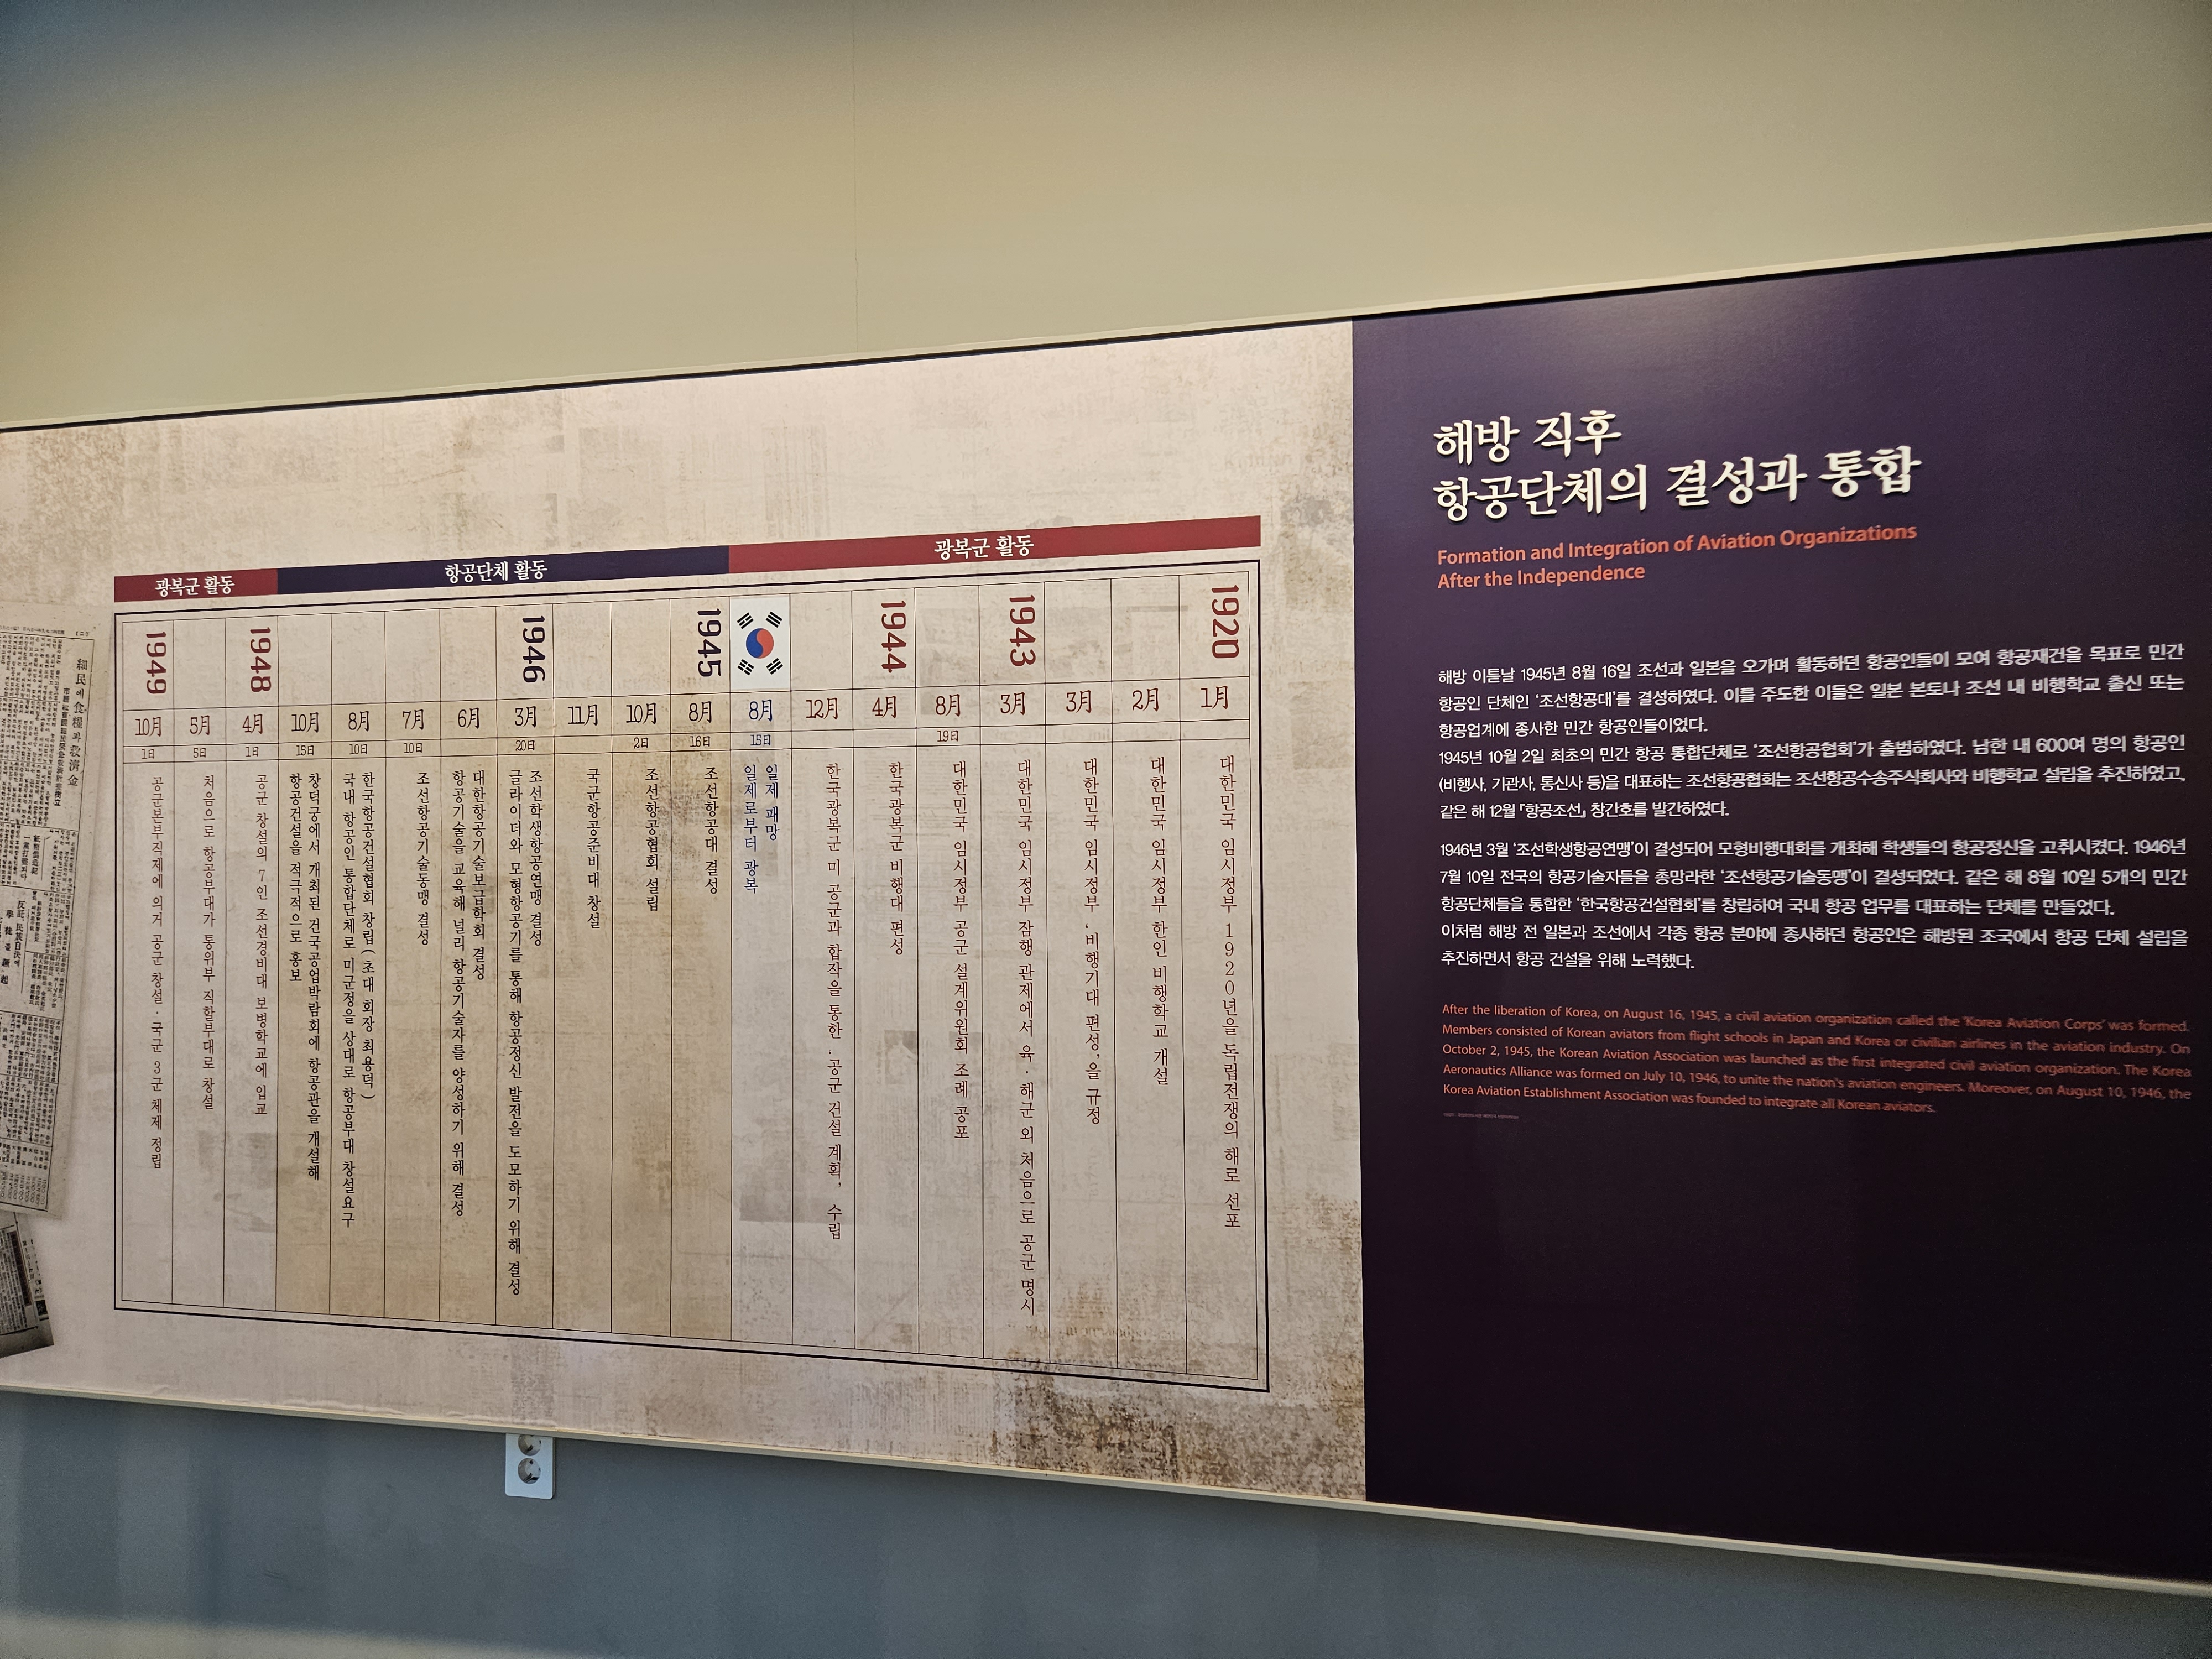 해방 직후
항공단체의 결성과 통합
Formation and Integration of Aviation Organizations
After the Independence
해방 이튿날 1945년 8월 16일 조선과 일본을 오가며 활동하던 항공인들이 모여 항공재건을 목표로 민간
항공인 단체인 '조선항공대'를 결성하였다. 이를 주도한 이들은 일본 본토나 조선 내 비행학교 출신 또는
항공업계에 종사한 민간 항공인들이었다.
1945년 10월 2일 최초의 민간 항공 통합단체로 '조선항공협회'가 출범하였다. 남한 내 600여 명의 항공인
(비행사, 기관사, 통신사 등)을 대표하는 조선항공협회는 조선항공수송주식회사와 비행학교 설립을 추진하였고,
같은 해 12월 『항공조선』 창간호를 발간하였다.
1946년 3월 '조선학생항공연맹'이 결성되어 모형비행대회를 개최해 학생들의 항공정신을 고취시켰다. 1946년
7월 10일 전국의 항공기술자들을 총망라한 '조선항공기술동맹'이 결성되었다. 같은 해 8월 10일 5개의 민간
항공단체들을 통합한 '한국항공건설협회'를 창립하여 국내 항공 업무를 대표하는 단체를 만들었다.
이처럼 해방 전 일본과 조선에서 각종 항공 분야에 종사하던 항공인은 해방된 조국에서 항공 단체 설립을
추진하면서 항공 건설을 위해 노력했다.
After the liberation of Korea, on August 16, 1945, a civil aviation organization called the 'Korea Aviation Corps' was formed.
Members consisted of Korean aviators from flight schools in Japan and Korea or civilian airlines in the aviation industry. On
October 2, 1945, the Korean Aviation Association was launched as the first integrated civil aviation organization. The Korea
Aeronautics Alliance was formed on July 10, 1946, to unite the nation's aviation engineers. Moreover, on August 10, 1946, the
Korea Aviation Establishment Association was founded to integrate all Korean aviators.
광복군 활동
1920
1月
대한민국 임시정부 1920년을 독립전쟁의 해로 선포
2月
대한민국 임시정부 한인 비행학교 개설
3月
대한민국 임시정부 '비행기대 편성'을 규정
1943
3月
대한민국 임시정부 잠행 관제에서 육·해군 외 처음으로 공군 명시
8月
19日
대한민국 임시정부 공군 설계위원회 조례 공포
1944
4月
한국광복군 비행대 편성
12月
한국광복군 미 공군과 합작을 통한 '공군 건설 계획' 수립
8月
15日
일제 패망
일제로부터 광복
항공단체 활동
1945
8月
16日
조선항공대 결성
10月
2日
조선항공협회 설립
11月
국군항공준비대 창설
1946
3月
20日
조선학생항공연맹 결성
글라이더와 모형항공기를 통해 항공정신 발전을 도모하기 위해 결성
6月
대한항공기술보급학회 결성
항공기술을 교육해 널리 항공기술자를 양성하기 위해 결성
7月
10日
조선항공기술동맹 결성
8月
10日
한국항공건설협회 창립(초대 회장 최용덕)
국내 항공인 통합단체로 미군정을 상대로 항공부대 창설요구
10月
15日
창덕궁에서 개최된 건국공업박람회에 항공관을 개설해
항공건설을 적극적으로 홍보
광복군 활동
1948
4月
1日
공군 창설의 7인 조선경비대 보병학교에 입교
5月
5日
처음으로 항공부대가 통위부 직할부대로 창설
1949
10月
1日
공군본부직제에 의거 공군 창설·국군 3군 체제 정립
細民에 食糧과 救濟金